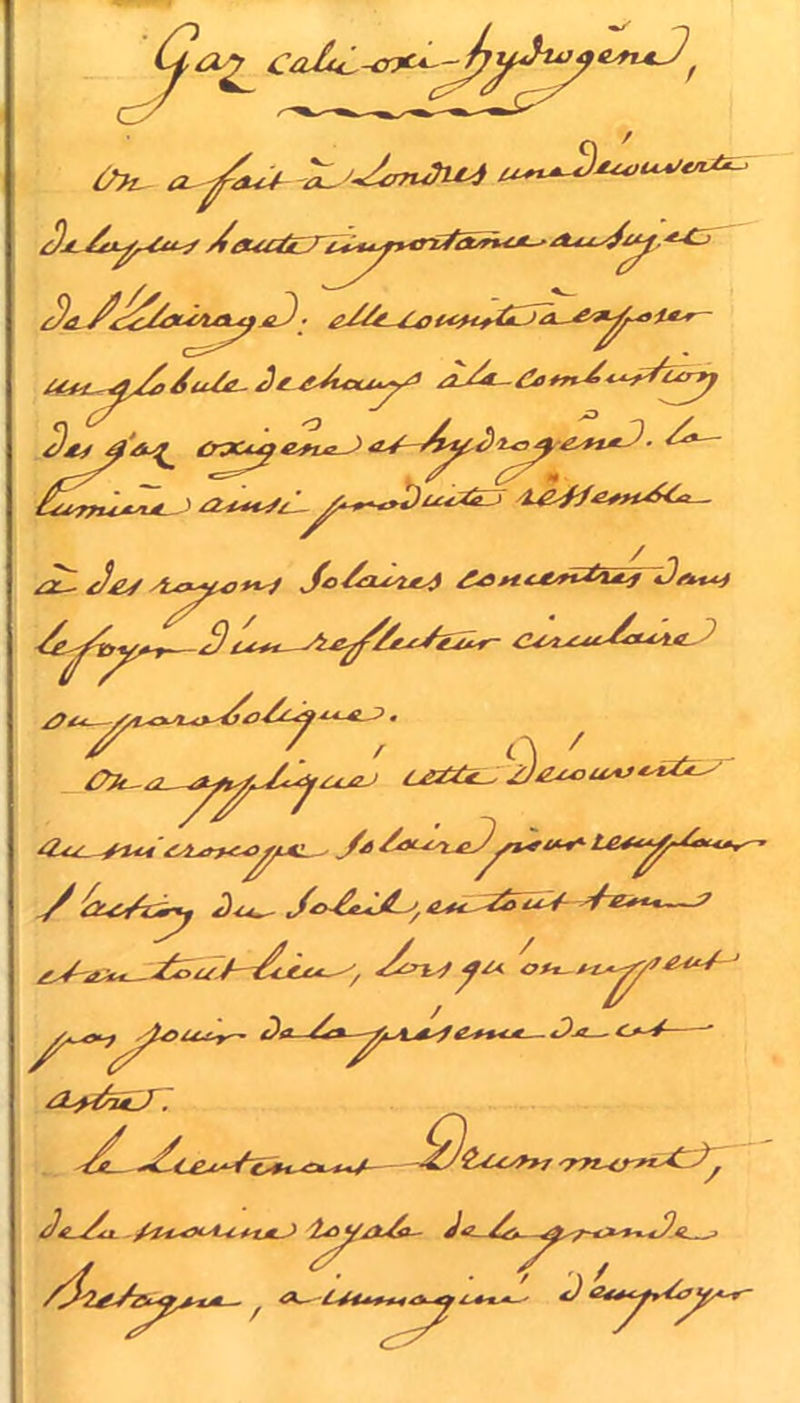 Gaz calci-oxi-hydrogène,
On a fait à Londres une découverte
de la plus haute importance au sujet
de l'éclairage; elle consiste à exposer
un globule de chaux à la combustion
des gaz oxigêne et hydrogêne. la
lumière ainsi produite réssemble
à des rayons solaires concentrés dans
le foyer d'un reflecteur circulaire
ou parabolique.
On a appliqué cette découverte
au microscope solaire pour remplacer
l'action du soleil, en tout tems
et en tout lieu, lors qu'on ne peut
pas jouir de la présence de cet
astre.
le Lieutenant Drummont,
de la marine royale de la grande
Bretagne, a immaginé d'employer